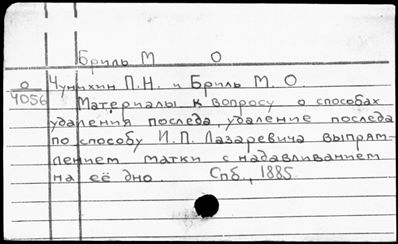 Бриль М О
О
4056
Чунихин П.Н. и Бриль М. О.
Материалы к вопросу о способах
удаления последа, удаление последа
по способу И.П. Лазаревича выпрям-
лением матки с надавливанием
на её дно. Спб., 1885.